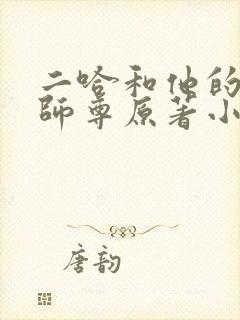 二哈和他的
師尊原著小
唐韵